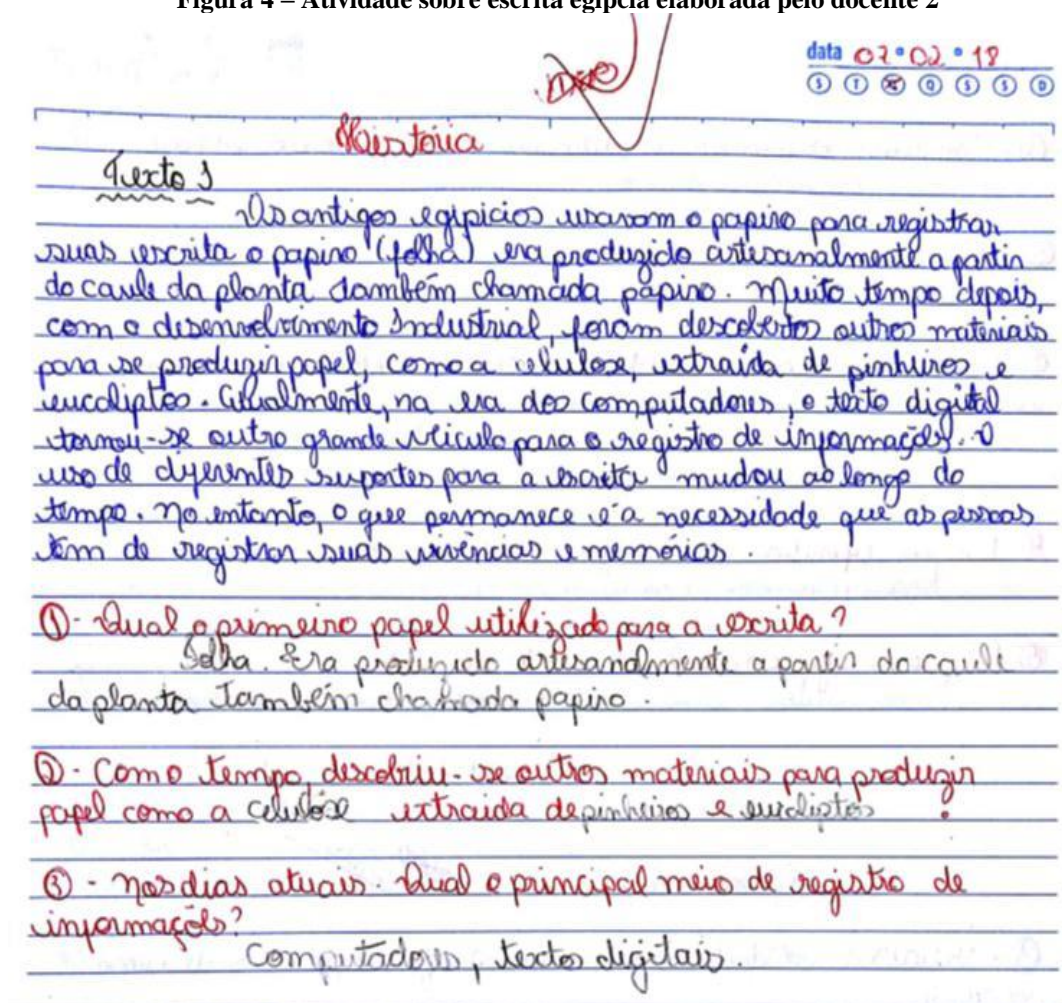 Figura 4 – Atividade sobre escrita egípcia elaborada pelo docente 2
data 07 02 18
S T Q S S D
História
Texto 1
Os antigos egipicios usavam o papiro para registrar
suas escrita o papiro (folha) era produzido artesanalmente a partir
do caule da planta também chamada papiro. Muito tempo depois,
com o desenvolvimento Industrial, foram descobertos outros materiais
para se produzir papel, como a celulose, extraída de pinheiros e
eucaliptos. Atualmente, na era dos computadores, o texto digital
tornou-se outro grande veículo para o registro de informações. O
uso de diferentes suportes para a escrita mudou ao longo do
tempo. No entanto, o que permanece é a necessidade que as pessoas
têm de registrar suas vivências e memórias.
①- Qual o primeiro papel utilizado para a escrita?
Folha. Era produzido artesanalmente a partir do caule
da planta também chamada papiro.
②- Com o tempo, descobriu-se outros materiais para produzir
papel como a celulose extraida de pinheiros e eucaliptos ?
③- Nos dias atuais. Qual o principal meio de registro de
informações?
Computadores, textos digitais.